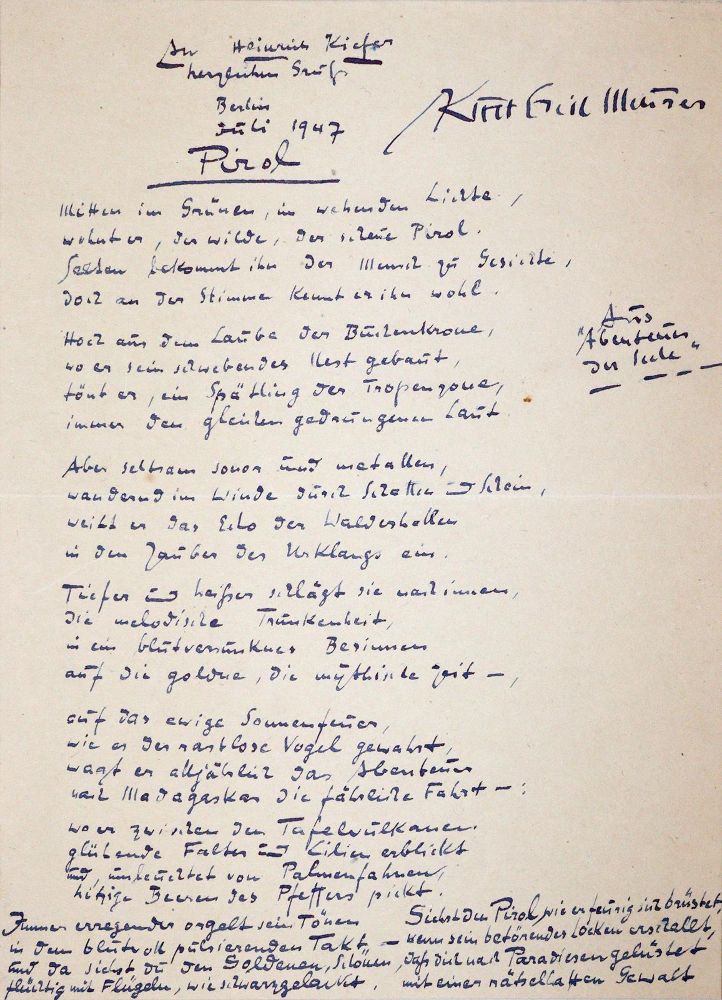 An Heinrich Kiefer
herzlichen Gruß
Berlin
Juli 1947
Kurt Erich Meurer
Pirol
Mitten im Grünen, im wehenden Lichte,
wohnt er, der wilde, der scheue Pirol.
Selten bekommt ihn der Mensch zu Gesichte,
doch an der Stimme kennt er ihn wohl.
Aus
"Abenteuer
der Seele"
Hoch aus dem Laube der Buchenkrone,
wo er sein schwebendes Nest gebaut,
tönt er, ein Spätling der Tropenzone,
immer den gleichen gedrungenen Laut.
Aber seltsam sonor und metallen,
wandernd im Winde durch Schatten und Schein,
weiht er das Echo der Walderhallen
in den Zauber des Urklangs ein.
Tiefer und heißer schlägt sie nach innen,
die melodische Trunkenheit,
in ein blutversunknes Besinnen
auf die goldne, die mythische Zeit –,
auf das ewige Sonnenfeuer,
wie es der rastlose Vogel gewahrt,
wagt er alljährlich das Abenteuer
nach Madagaskar die fährliche Fahrt –:
wo er zwischen den Tafelvulkanen
glühende Falter und Lilien erblickt
und, umleuchtet von Palmenfahnen,
hitzige Beeren des Pfeffers pickt.
Immer erregender orgelt sein Tönen
in dem blutvoll pulsierenden Takt, –
und da siehst du den Goldenen, Schönen,
flüchtig mit Flügeln, wie schwarzgelackt.
Siehst den Pirol, wie er feurig sich brüstet,
wenn sein betörendes Locken erschallt,
daß dich nach Paradiesen gelüstet
mit einer rätselhaften Gewalt